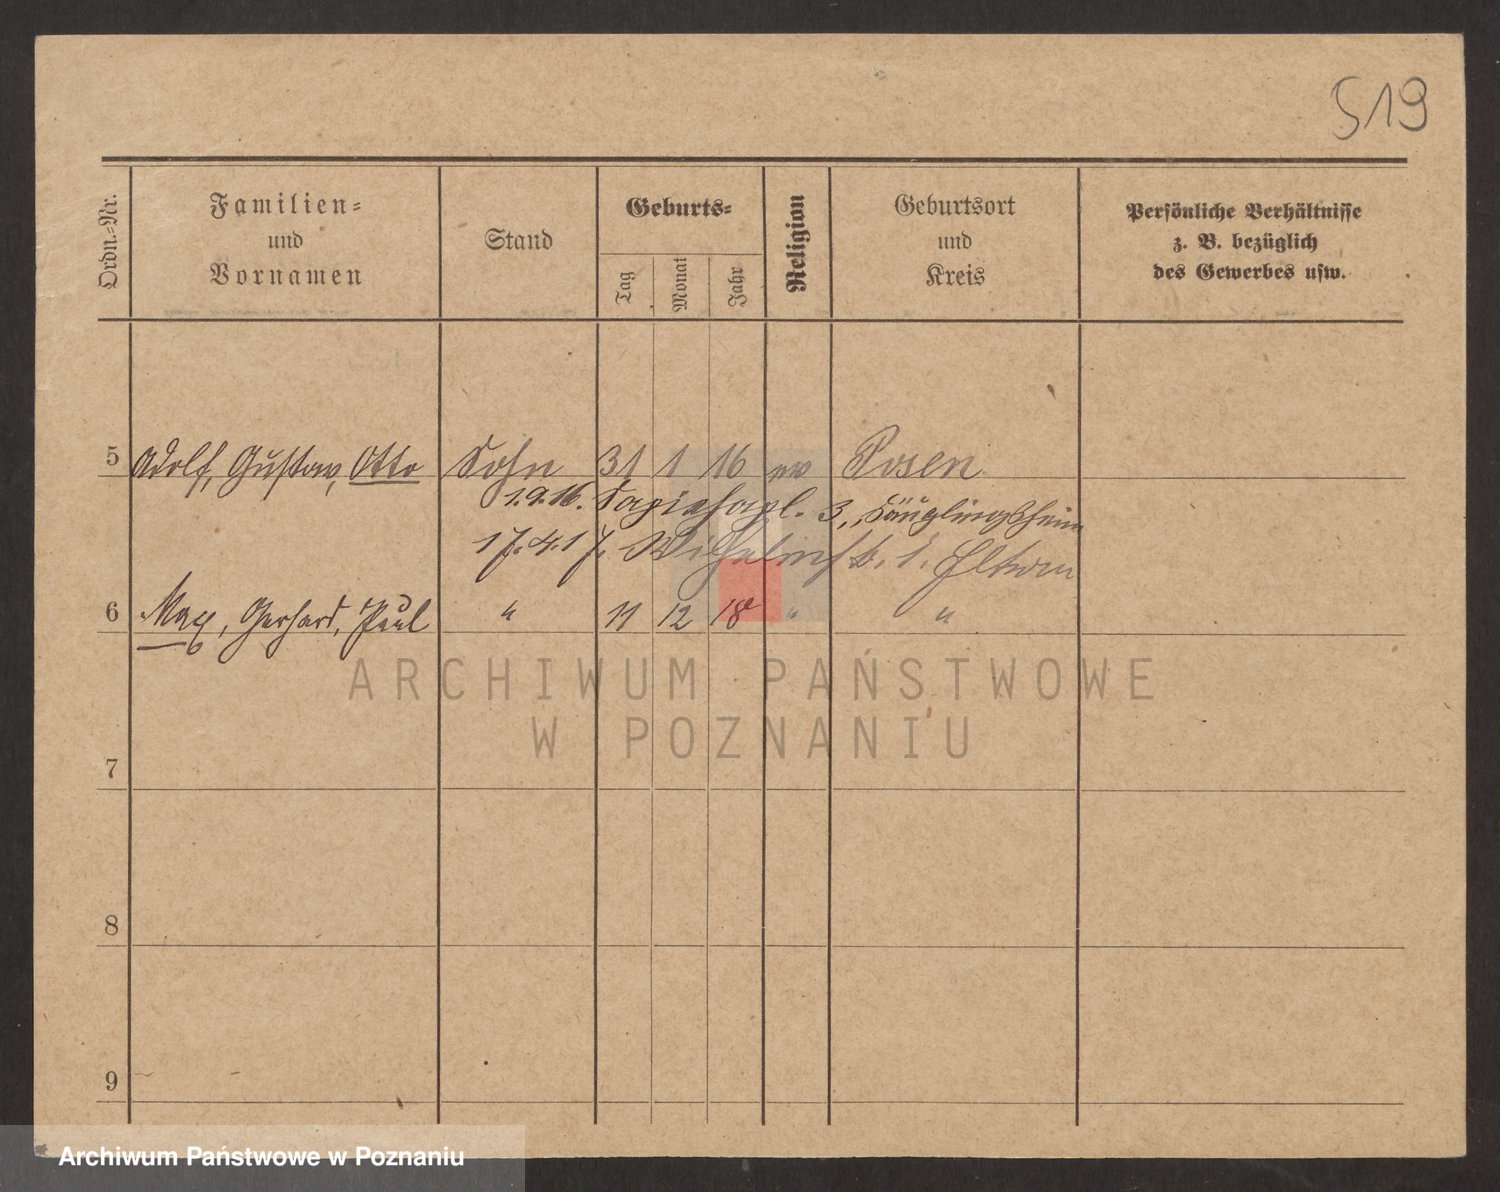 519
Ordn.-Nr.
Familien-
und
Vornamen
Stand
Geburts-
Tag
Monat
Jahr
Religion
Geburtsort
und
Kreis
Persönliche Verhältnisse
z. B. bezüglich
des Gewerbes usw.
5 Adolf, Gustav, Otto Sohn 31 1 16 ev Posen
1.9.16. Sapiehapl. 3, Säuglingsheim
17.4.17. Wilhelmstr. 1. Eltern
6 Max, Gerhard, Paul " 11 12 18 " "
ARCHIWUM PAŃSTWOWE
W POZNANIU
7
8
9
Archiwum Państwowe w Poznaniu